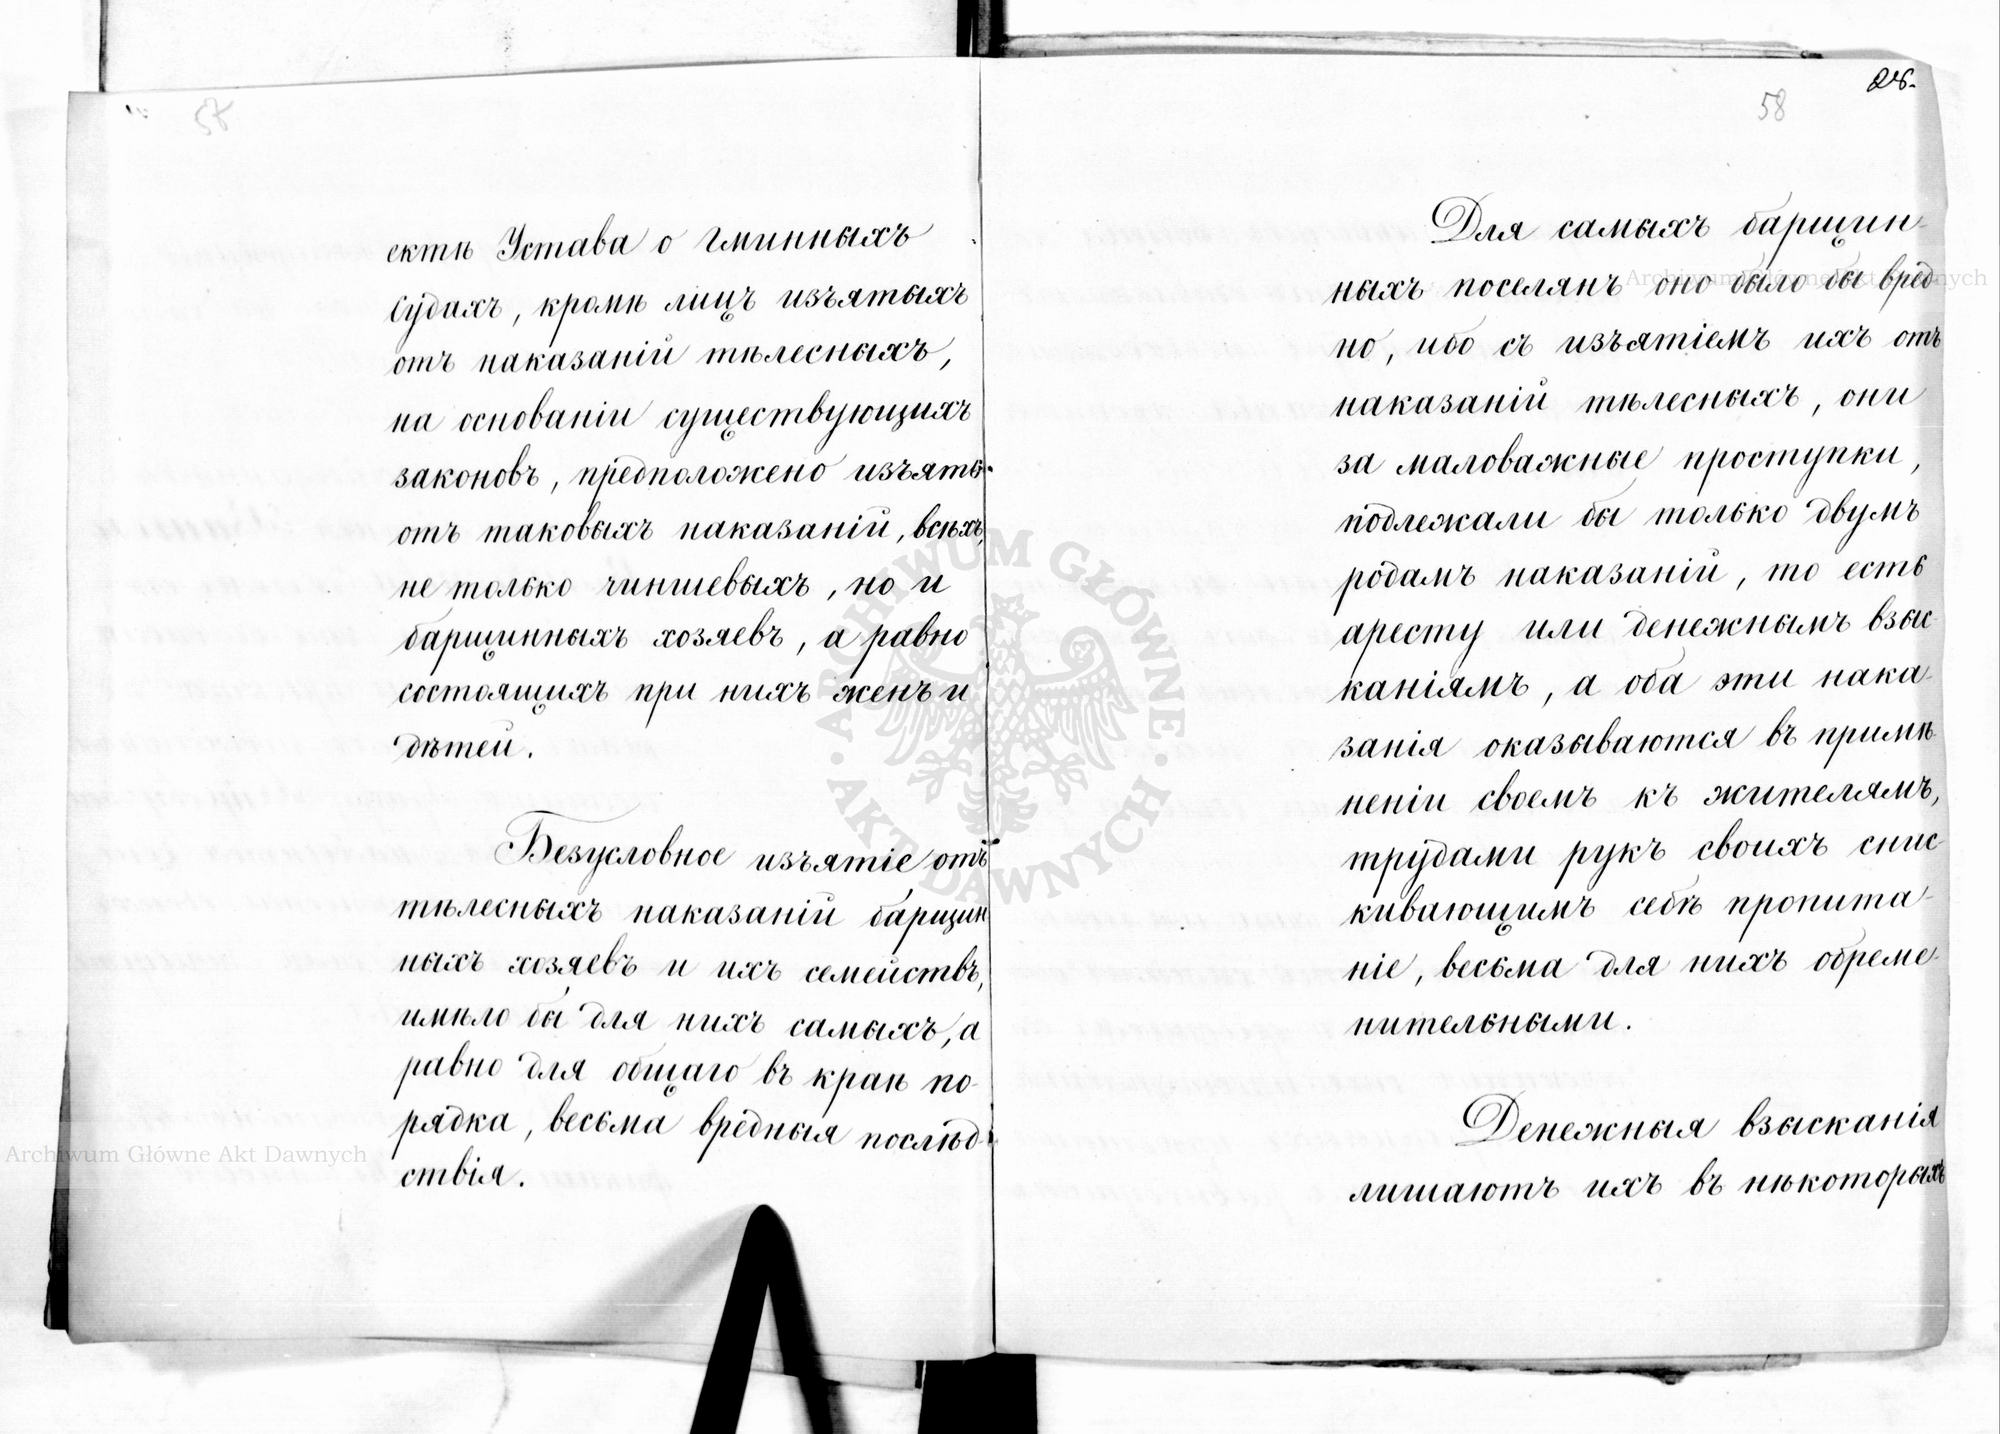 57
ектѣ Устава о гминныхъ
Судахъ, кромѣ лицъ изъятыхъ
отъ наказаній тѣлесныхъ,
на основаніи существующихъ
законовъ, предположено изъять
отъ таковыхъ наказаній, всѣхъ,
не только чиншевыхъ, но и
барщинныхъ хозяевъ, а равно
состоящихъ при нихъ женъ и
дѣтей.
Безусловное изъятіе отъ
тѣлесныхъ наказаній барщин
ныхъ хозяевъ и ихъ семействъ,
имѣло бы для нихъ самыхъ, а
равно для общаго въ краѣ по-
рядка, весьма вредныя послѣд-
ствія.
58
Для самыхъ барщин-
ныхъ поселянъ оно было бы вред-
но, ибо съ изъятіемъ ихъ отъ
наказаній тѣлесныхъ, они
за маловажные проступки,
подлежали бы только двумъ
родамъ наказаній, то есть
аресту или денежнымъ взыс-
каніямъ, а оба эти нака-
занія оказываются въ примѣ-
неніи своемъ къ жителямъ,
трудами рукъ своихъ снис-
кивающимъ себѣ пропита-
ніе, весьма для нихъ обреме-
нительными.
Денежныя взысканія
лишаютъ ихъ въ нѣкоторыхъ
Archiwum Główne Akt Dawnych
Archiwum Główne Akt Dawnych
ARCHIWUM GŁÓWNE
AKT DAWNYCH